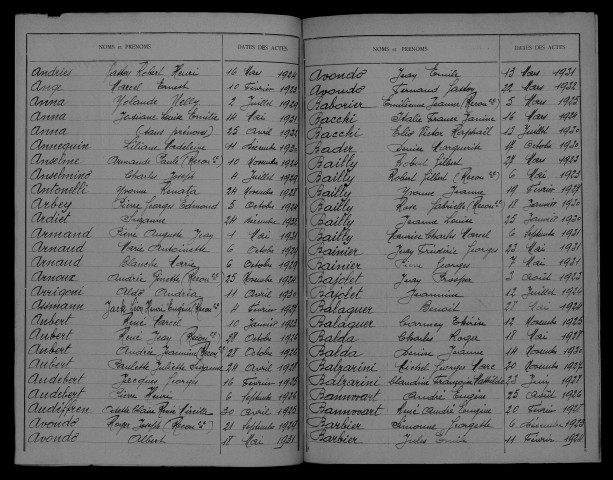 NOMS et PRÉNOMS DATES DES ACTES
Andries Gaston Robert Henri 16 Mars 1924
Ange Marcel Ernest 10 Février 1928
Anna Yolande Nelly 2 Juillet
Anna Josiane Louise Emilie 14 Mai 1931
Anna (sans prénoms) 25 Avril 1932
Annequin Liliane Madeleine 11 Décembre 1930
Anselme Armande Paule (Recon ce) 10 Novembre 1924
Anselmino Charles Joseph 4 Juillet 1929
Antonelli Yvonne Renata 24 Novembre 1928
Arbey Pierre Georges Edmond 5 Octobre
Ardiet Suzanne 24 Décembre
Armand Pierre Auguste Jean 1 Mai 1931
Arnaud Marie Antoinette 6 Octobre
Arnaud Blanche Marie 6 Octobre 1929
Arnoux Andrée Ginette (Recon ce) 25 Novembre 1924
Arrigoni Aldo Andréa 11 Avril 1930
Assmann Jack Henri Eugène (Recon ce) 4 Février
Aubert René Marcel 10 Janvier
Aubert René Jean (Recon ce) 28 Octobre
Aubert Andrée Jeannine (Recon ce) 28 Octobre 1926
Aubert Paulette Juliette Suzanne 24 Avril
Audebert Jacques Georges 16 Février
Audebert Pierre Henri 6 Septembre 1926
Audiffren Odette Claire Renée Mireille 30 Avril 1925
Avondo Roger Joseph (Recon ce) 21 Septembre 1929
Avondo Albert 18 Mai 1931
NOMS et PRÉNOMS DATES DES ACTES
Avondo Jean Emile 13 Mars 1931
Avondo Fernand Gaston 22 Mars 1932
Baborier Emilienne Jeanne (Recon ce) 5 Mars 1925
Bacchi Italia France Janine 16 Mars 1924
Bacchi Elio Victor Raphaël 12 Juillet 1930
Bader Denise Marguerite 14 Octobre 1930
Bailly Robert Gilbert 28 Mars 1923
Bailly Robert Gilbert (Recon ce) 6 Mai 1923
Bailly Yvonne Jeanne 19 Février 1928
Bailly Rose Gabrielle (Recon ce) 18 Janvier 1930
Bailly Jeanne Louise 25 Janvier 1930
Bailly Maurice Charles Marcel 6 Septembre 1931
Bainier Jean Frédéric Georges 22 Mai 1931
Bainier Georges 7 Mai 1931
Bajolet Jean Prosper 3 Août 1922
Bajolet Jeannine 12 Juillet 1924
Balaguer Benoît 28 Mai 1924
Balaguer Carmen Thérèse 12 Novembre 1925
Balda Charles Roger 18 Mai 1928
Balda Denise Jeanne 14 Novembre 1930
Balzarini Michel Georges Marc 20 Novembre 1927
Balzarini Claudine Françoise Mathilde 23 Juin 1928
Bannwart André Eugène 25 Août 1926
Bannwart René André Eugène 20 Février 1928
Barbier Simonne Georgette 6 Décembre 1923
Barbier Jules Emile 11 Février 1924